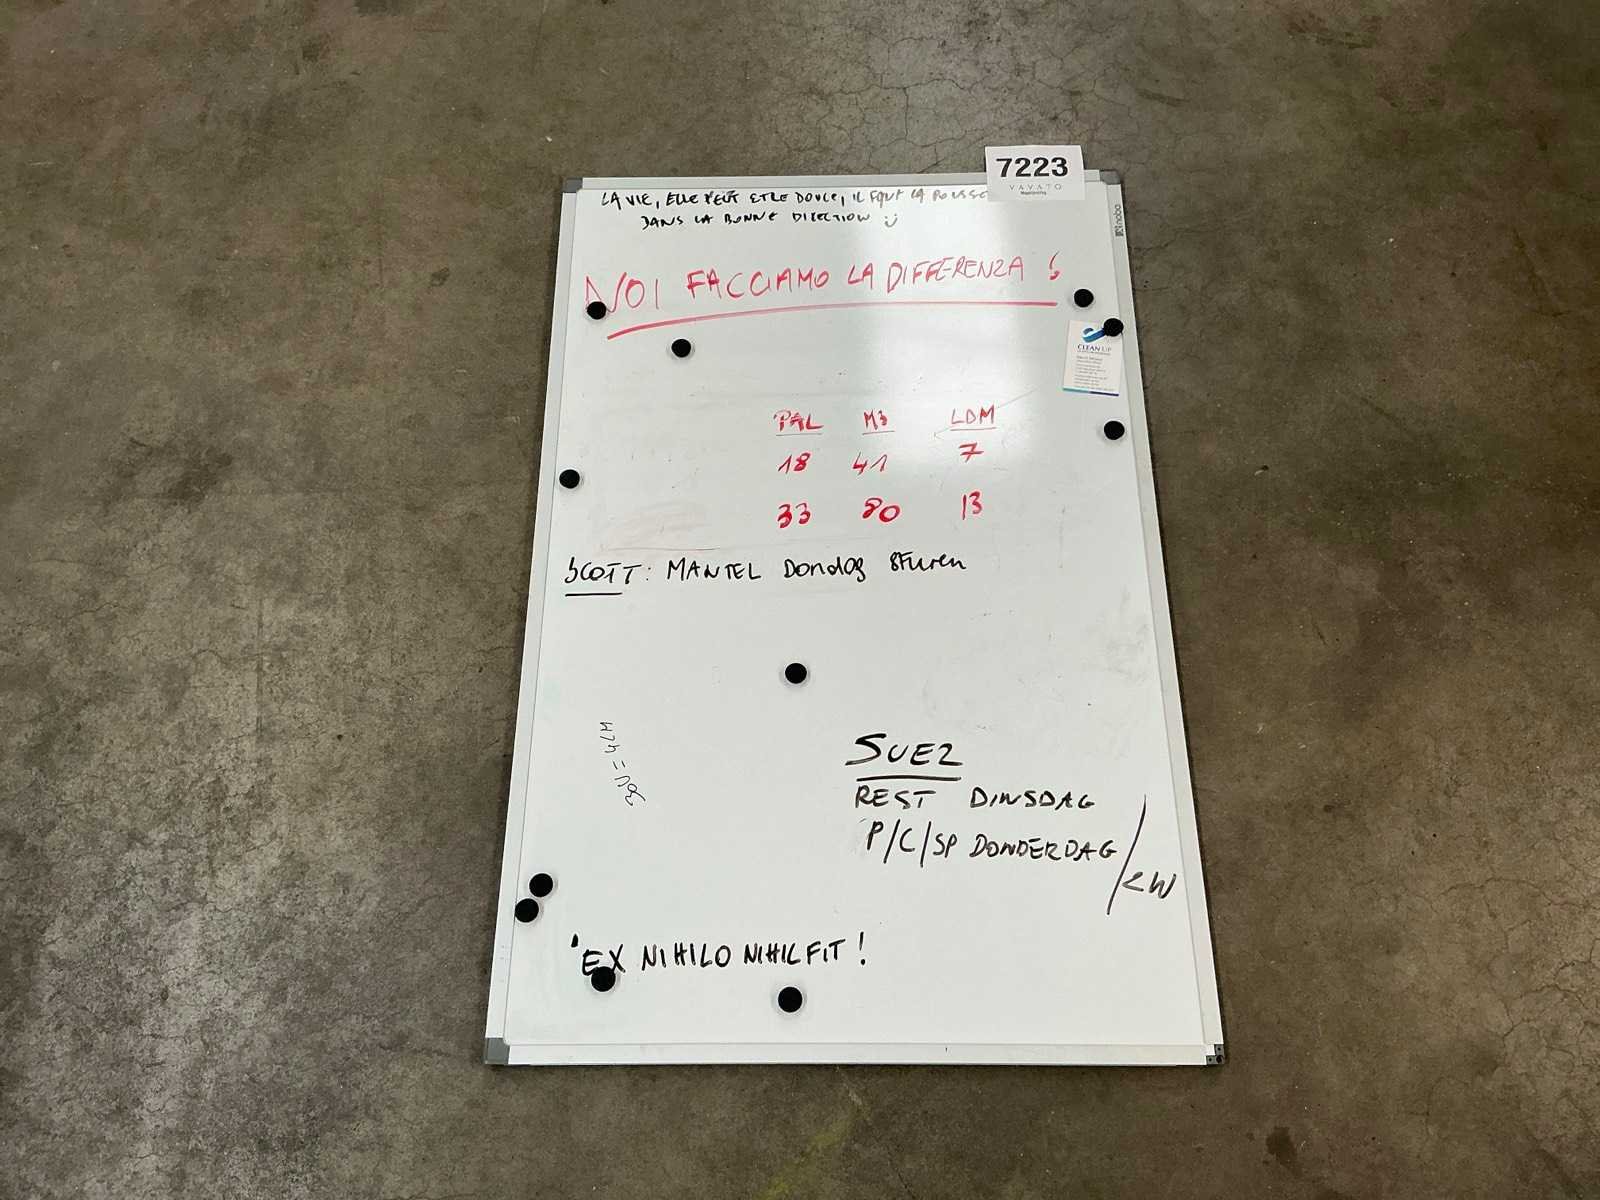 7223
VAVATO
LA VIE, ELLE PEUT ETRE DOUCE, IL FAUT LA POUSSE
DANS LA BONNE DIRECTION
noba
NOI FACCIAMO LA DIFFERENZA !
CLEAN UP
PAL M3 LDM
18 41 7
33 80 13
SCOTT: MANTEL Dondag STuren
30U = 4LM
SUEZ
REST DINSDAG
P/C/SP DONDERDAG / 2W
'EX NIHILO NIHIL FIT!